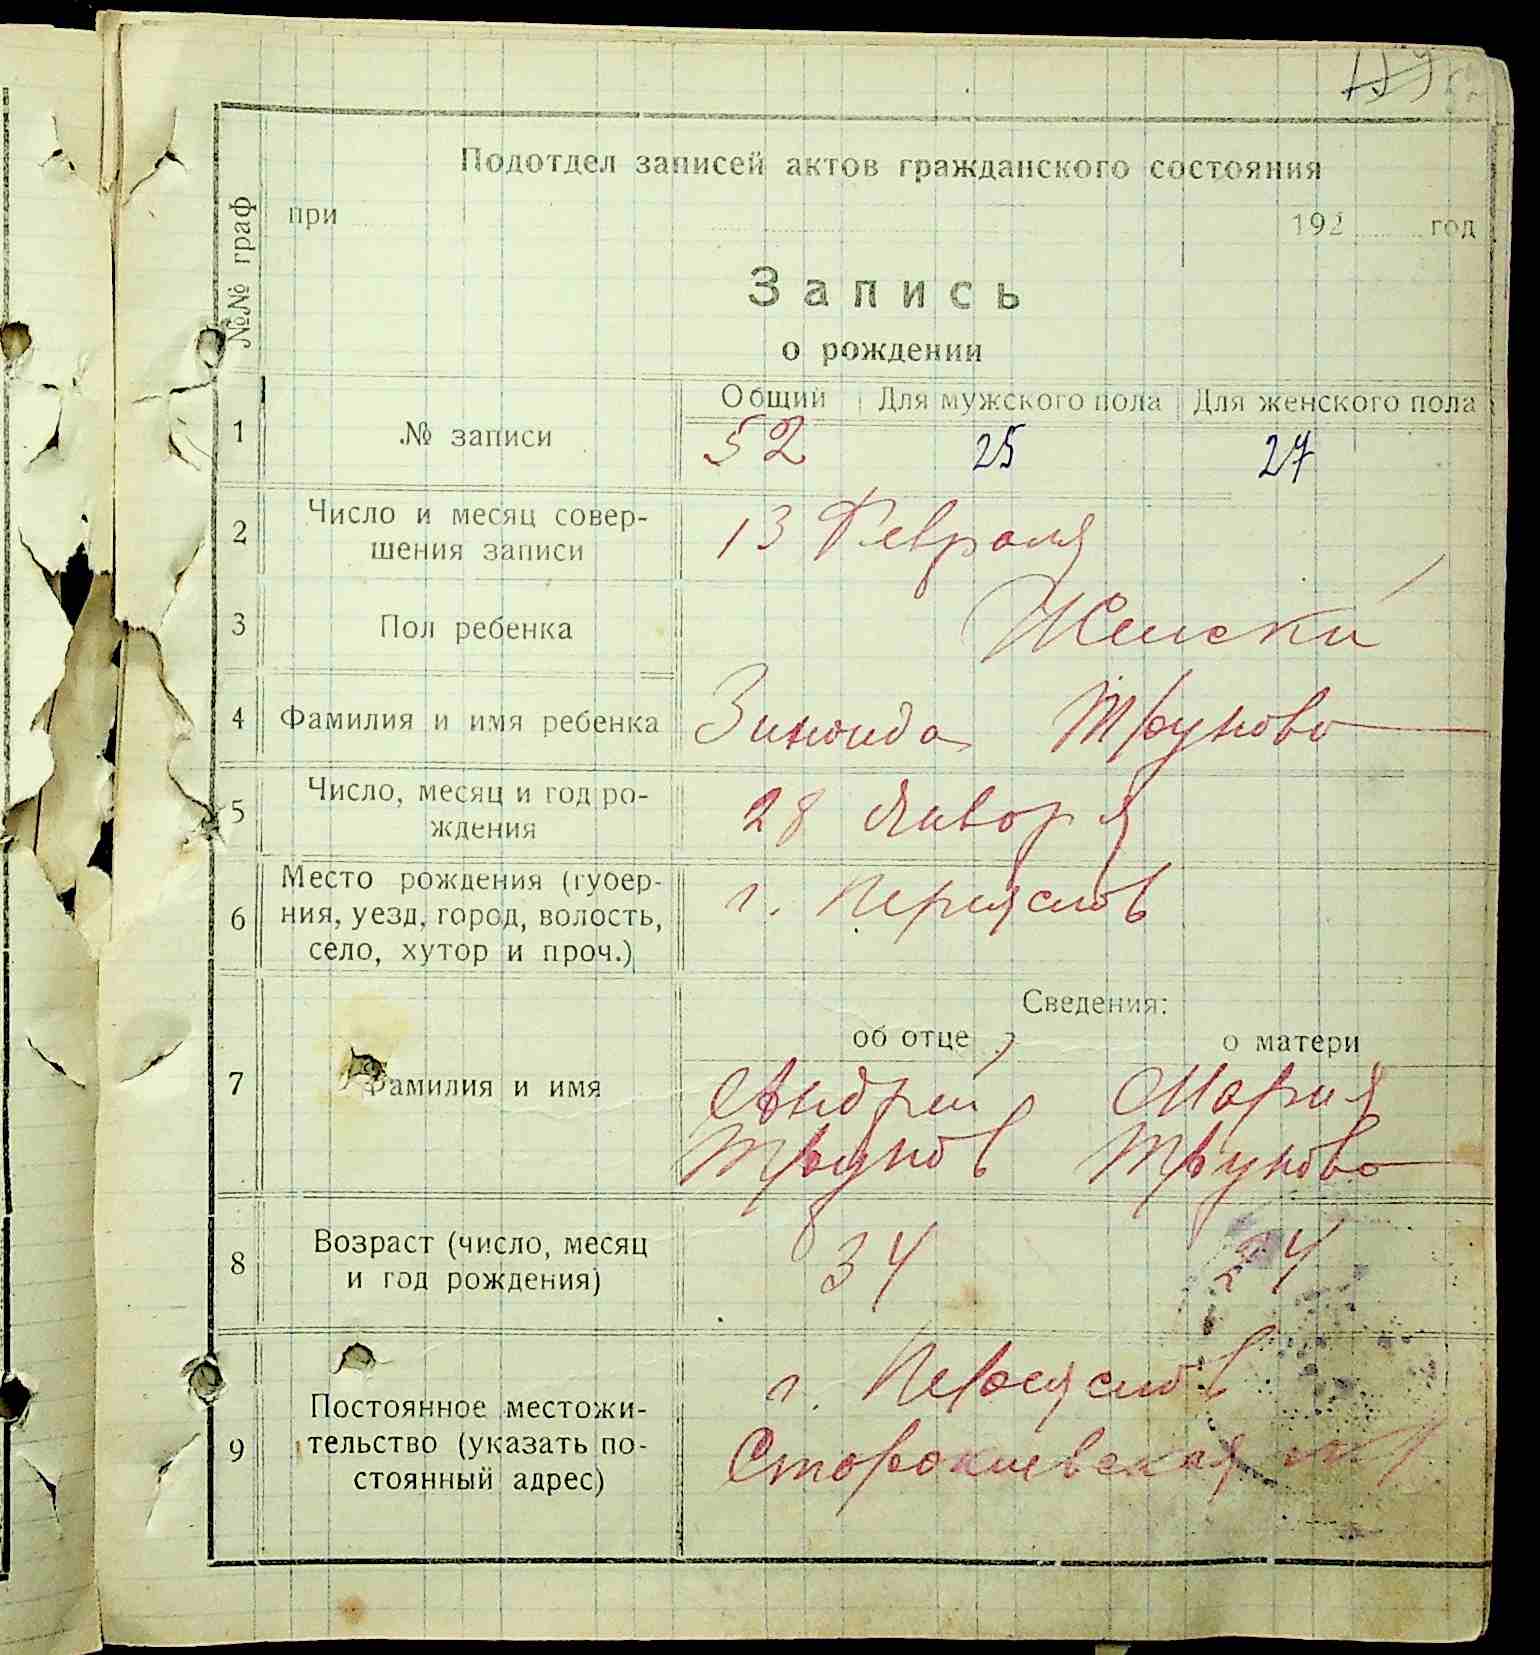 Подотдел записей актов гражданского состояния
при 192 год
№№ граф
Запись
о рождении
Общий Для мужского пола Для женского пола
1 № записи 52 25 27
2 Число и месяц совер-
шения записи 13 Февраля
3 Пол ребенка Женский
4 Фамилия и имя ребенка Зинаида Трунова
5 Число, месяц и год ро-
ждения 28 Января
6 Место рождения (губер-
ния, уезд, город, волость,
село, хутор и проч.) г. Переяслов
Сведения:
об отце о матери
7 Фамилия и имя Андрей Мария
Трунов Трунова
8 Возраст (число, месяц
и год рождения) 34 24
9 Постоянное местожи-
тельство (указать по-
стоянный адрес) г. Переяслов
Старокиевская